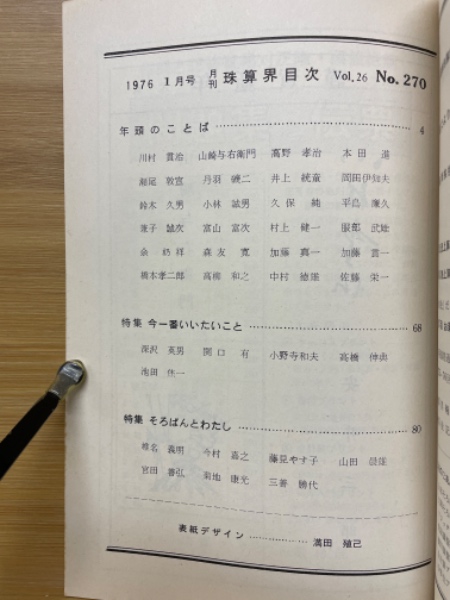 1976 1月号 月刊 珠算界目次 Vol.26 No.270
年頭のことば 4
川村 貫治 山崎与右衛門 高野 孝治 本田 進
瀬尾 敦宣 丹羽 井上 統童 岡田伊知夫
鈴木 久男 小林 誠男 久保 純 平島 廉久
金子 誠次 富山 富次 村上 健一 服部 武雄
余 紡祥 森友 寛 加藤 真一 加藤 雲一
橋本孝二郎 高柳 和之 中村 徳雄 佐藤 栄一
特集 今一番いいたいこと 68
深沢 英男 関口 有 小野寺和夫 高橋 伸典
池田 隹一
特集 そろばんとわたし 80
椎名 義明 今村 嘉之 藤見やす子 山田
宮田 善弘 菊地 康光 三善 勝代
表紙デザイン 溝田 殖己